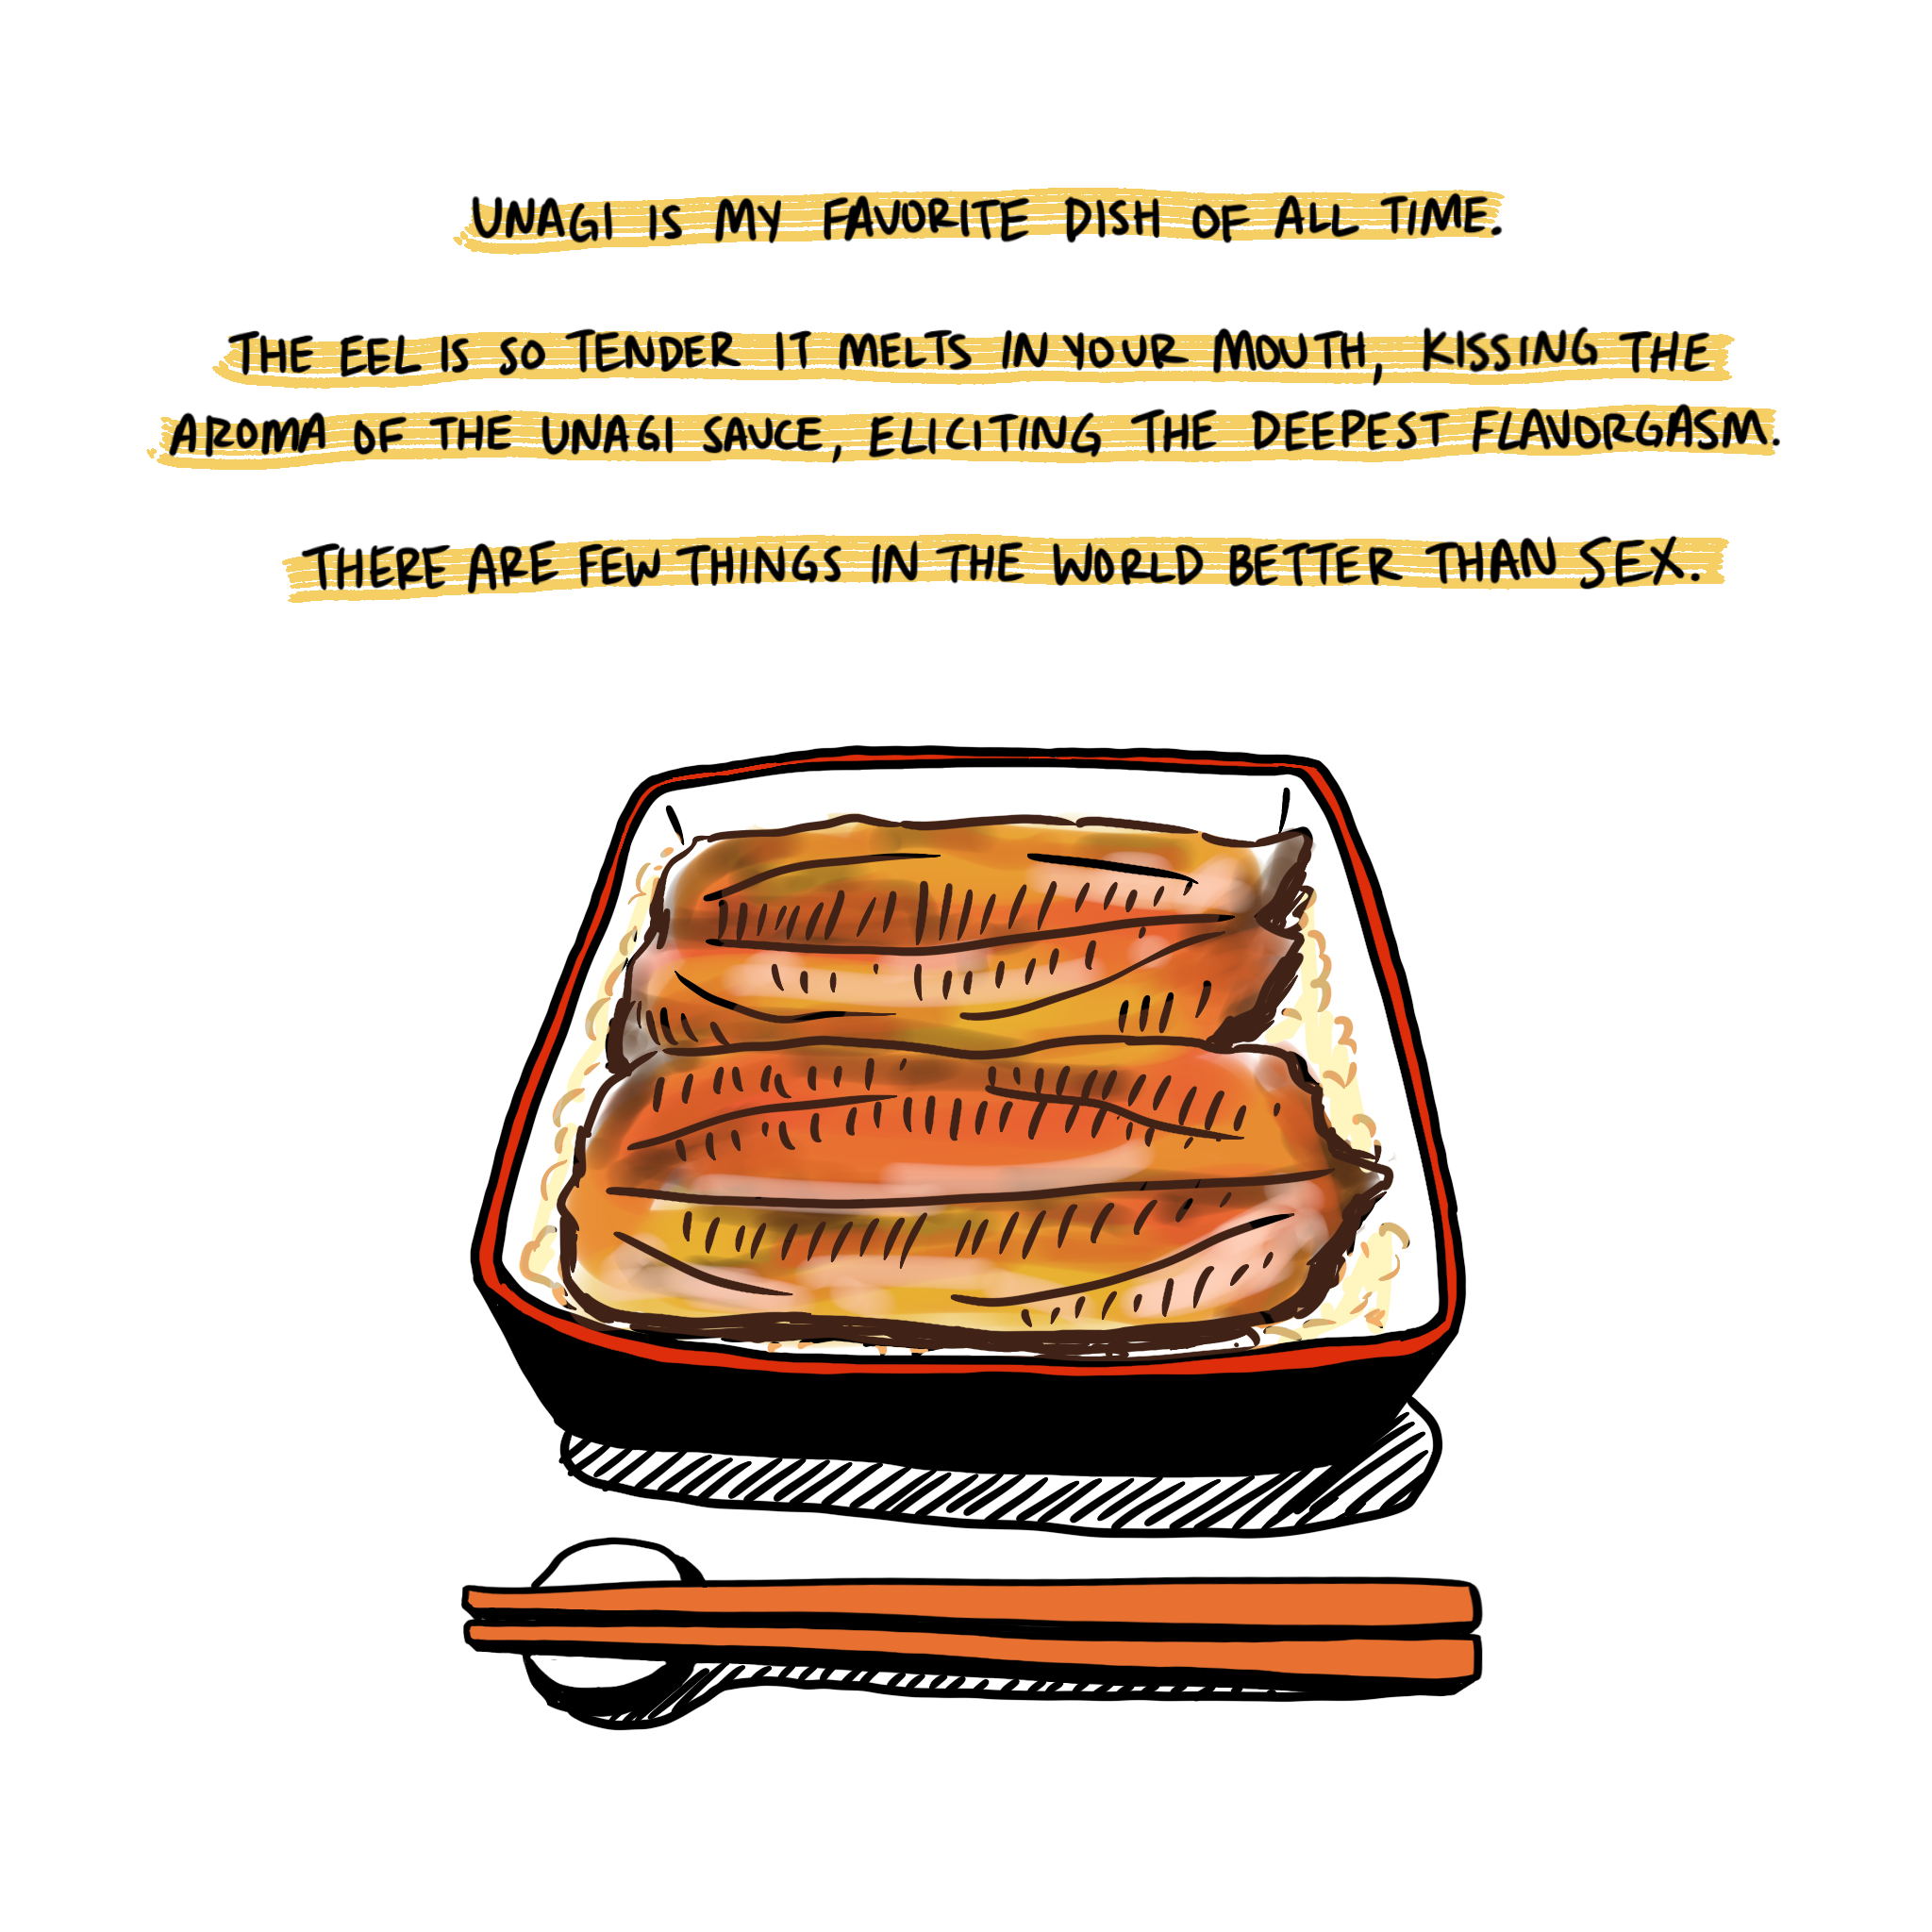 UNAGI IS MY FAVORITE DISH OF ALL TIME.
THE EEL IS SO TENDER IT MELTS IN YOUR MOUTH, KISSING THE
AROMA OF THE UNAGI SAUCE, ELICITING THE DEEPEST FLAVORGASM.
THERE ARE FEW THINGS IN THE WORLD BETTER THAN SEX.